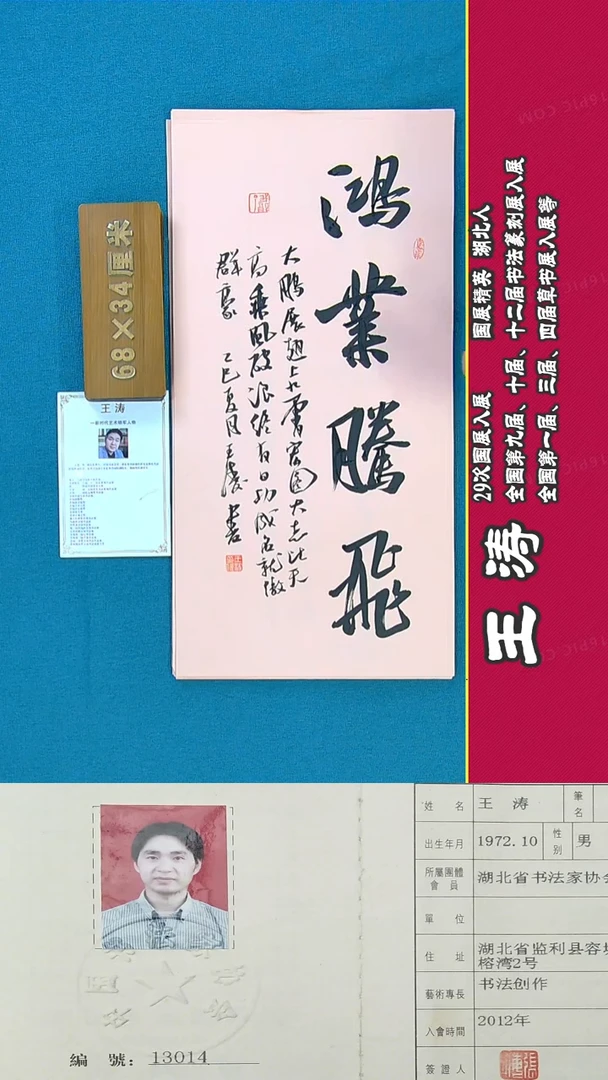 鸿業騰飛
大鵬展翅上九霄宏图大志比天
高乘風破浪終有日功成名就傲
群豪 乙巳夏月王涛书
68×34厘米
王涛
王涛
29次国展入展 国展精英 湖北人
全国第九届、十届、十二届书法篆刻展入展
全国第一届、三届、四届草书展入展等
編 號: 13014
姓 名 王 涛 筆名
出生年月 1972.10 性别 男
所屬團體會員 湖北省书法家协会
單 位
住 址 湖北省监利县容城
榕湾2号
藝術專長 书法创作
入會時間 2012年
簽證人